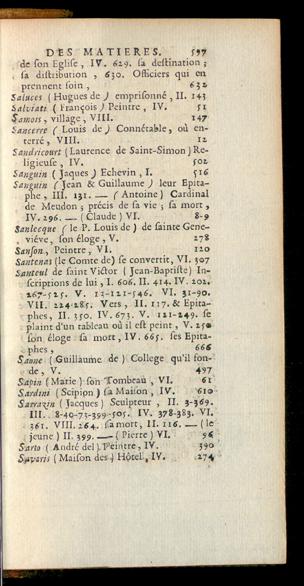 DES MATIERES. 597
de son Eglise, IV. 629. sa destination;
sa distribution, 630. Officiers qui en
prennent soin, 632
Saluces (Hugues de) emprisonné, II. 143
Salviate (François) Peintre, IV. 51
Samois, village, VIII. 147
Sancerre (Louis de) Connétable, où en-
terré, VIII. 12
Sandricourt (Laurence de Saint-Simon) Re-
ligieuse, IV. 502
Sanguin (Jaques) Echevin, I. 516
Sanguin (Jean & Guillaume) leur Epita-
phe, III. 131. — (Antoine) Cardinal
de Meudon; précis de sa vie; sa mort,
IV. 296. — (Claude) VI. 8-9
Sanlecque (le P. Louis de) de sainte Gene-
viéve, son éloge, V. 278
Sanson, Peintre, VI. 120
Santenas (le Comte de) se convertit, VI. 307
Santeul de saint Victor (Jean-Baptiste) In-
scriptions de lui, I. 606. II. 414. IV. 202.
267-525. V. 12-121-546. VI. 31-90.
VII. 224-285. Vers, II. 117. & Epita-
phes, II. 350. IV. 673. V. 121-249. se
plaint d'un tableau où il est peint, V. 250
son éloge sa mort, IV. 665. ses Epita-
phes, 666
Saune (Guillaume de) College qu'il fon-
de, V. 497
Sapin (Marie) son Tombeau, VI. 61
Sardini (Scipion) sa Maison, IV. 610
Sarazin (Jacques) Sculpteur, II. 3-369.
III. 8-40-73-399-505. IV. 378-383. VI.
361. VIII. 264. sa mort, II. 116. — (le
jeune) II. 399. — (Pierre) VI. 96
Sarto (André del) Peintre, IV. 390
Savaris (Maison des) Hôtel, IV. 274